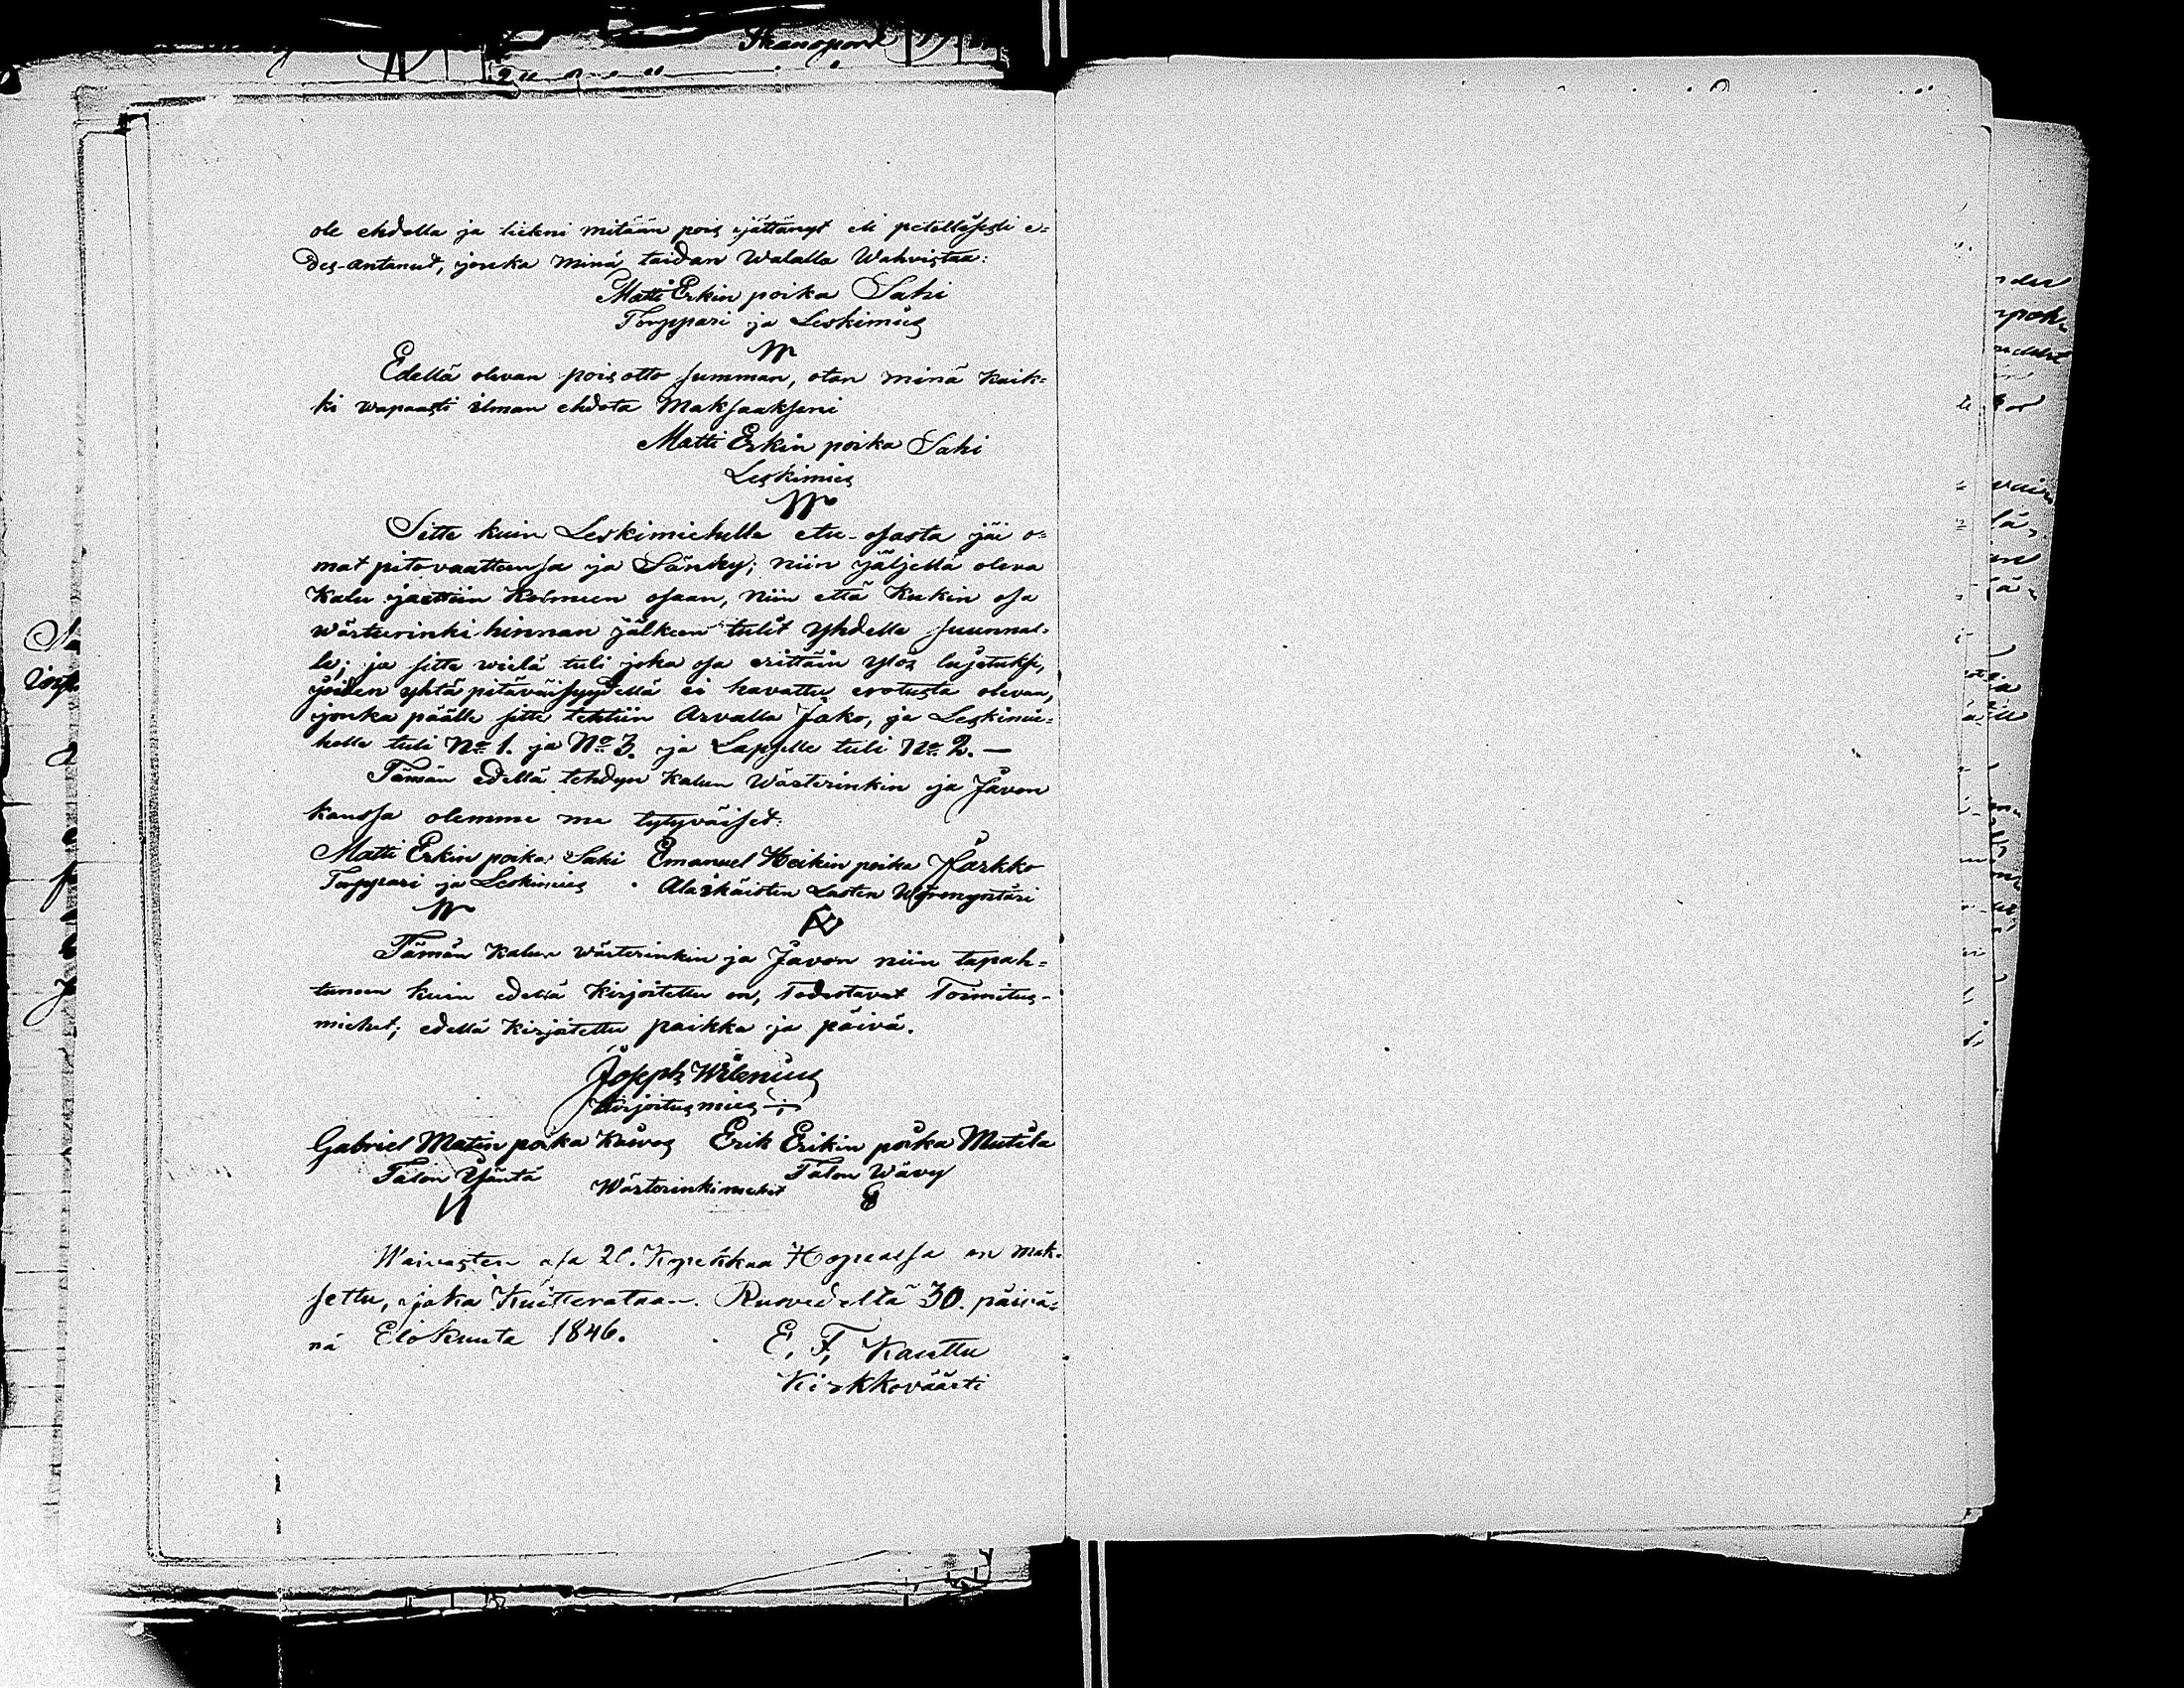 Transport
ole ehdolla ja tiekni mitään pois jättänyt eli petollisesti e=
des-antanut, jonka minä taidan Walalla Wahvistaa:
Matti Erkin poika Sahi
Torppari ja Leskimies
Edellä olevan pois otto summan, otan minä kaik=
ki wapaasti ilman ehdota Maksaakseni
Matti Erkin poika Sahi
Leskimies
Sitte kuin Leskimiehelle etu-osasta jäi o=
mat pitovaattensa ja Sänky; niin jäljellä oleva
Kalu jaettiin Kolmeen osaan, niin että kukin osa
wärteerinki hinnan jälkeen tulit yhdelle suunnal=
le; ja sitte wielä tuli joka osa erittäin ylös luetuksi,
joiden yhtä pitäväisyydellä ei havattu erotusta olevan,
jonka päälle sitte tehtiin Arvalla Jako, ja Leskimie=
helle tuli No 1. ja No 3. ja Lapselle tuli No 2. —
Tämän edellä tehdyn Kalun Wärterinkin ja Javon
kanssa olemme me tytyväiset:
Matti Erkin poika Sahi Emanuel Heikin poika Jarkko
Torppari ja Leskimies Alaikäisten Lasten
Tämän Kalun wärterinkin ja Javon niin tapah=
tuneen kuin edellä Kirjoitettu on, Todistavat Toimitus=
miehet; edellä Kirjoitettu paikka ja päivä.
Joseph Wilenius
Kirjoitus mies
Gabriel Matin poika Erik Erikin poika Mutila
Talon Isäntä Talon Wävy
Wärterinkimiehet
Waivasten osa 20. Kopekkaa Hopeassa on mak=
settu, joka Kuitterataan. Ruovedeltä 30. päivä=
nä Elokuuta 1846. E. F. Kauttu
Kirkkoväärti